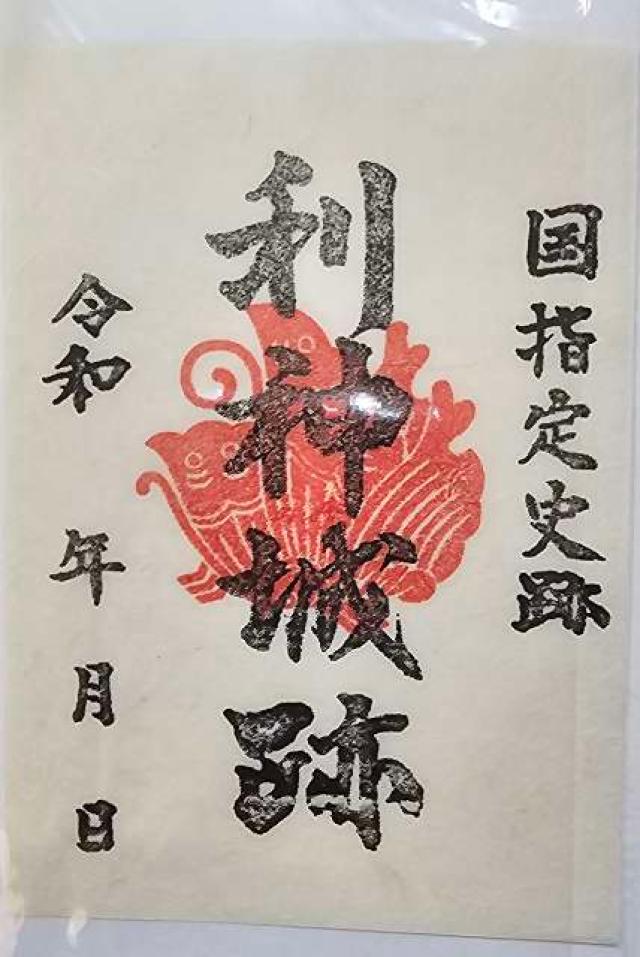 国指定史跡
利神城跡
令和 年 月 日